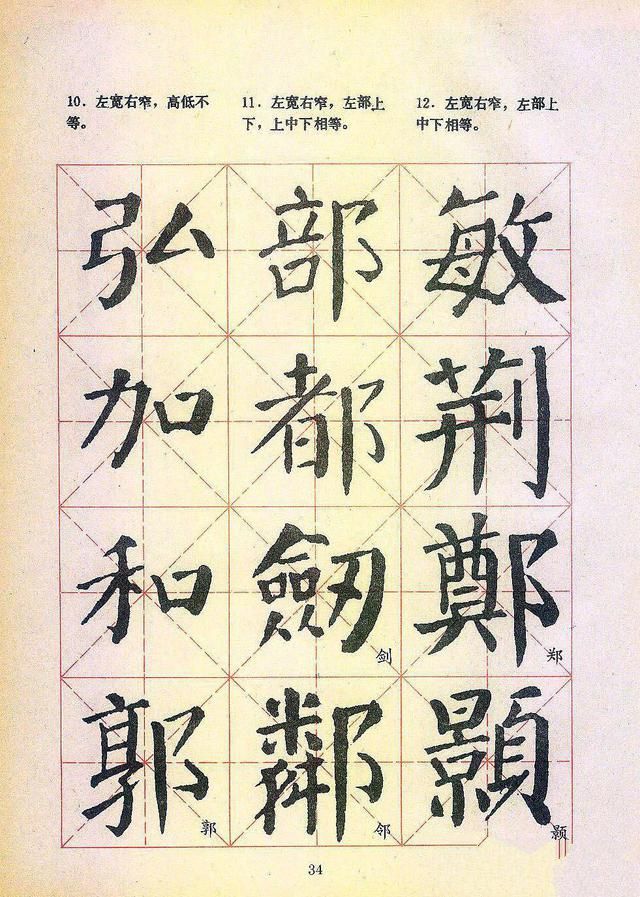 10．左宽右窄，高低不
等。
11．左宽右窄，左部上
下，上中下相等。
12．左宽右窄，左部上
中下相等。
弘 部 敏
加 都 荆
和 劒 鄭
剑 郑
郭 鄰 顥
郭 邻 颢
34